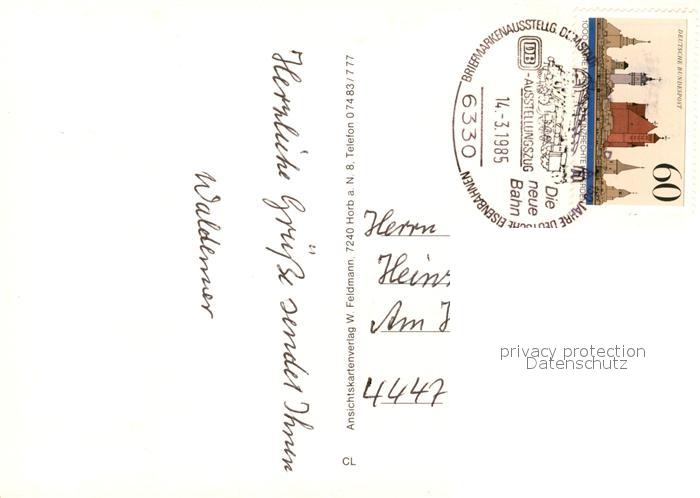 Herzliche Grüße sendet Ihnen
Waldemar
Ansichtskartenverlag W. Feldmann, 7240 Horb a. N. 8, Telefon 0 74 83 / 7 77
CL
BRIEFMARKENAUSSTELLG.
JAHRE DEUTSCHE EISENBAHNEN
6330
14.-3.1985
DB
-AUSSTELLUNGSZUG
Die
neue
Bahn
DEUTSCHE BUNDESPOST
60
Herrn
Am
4447
privacy protection
Datenschutz